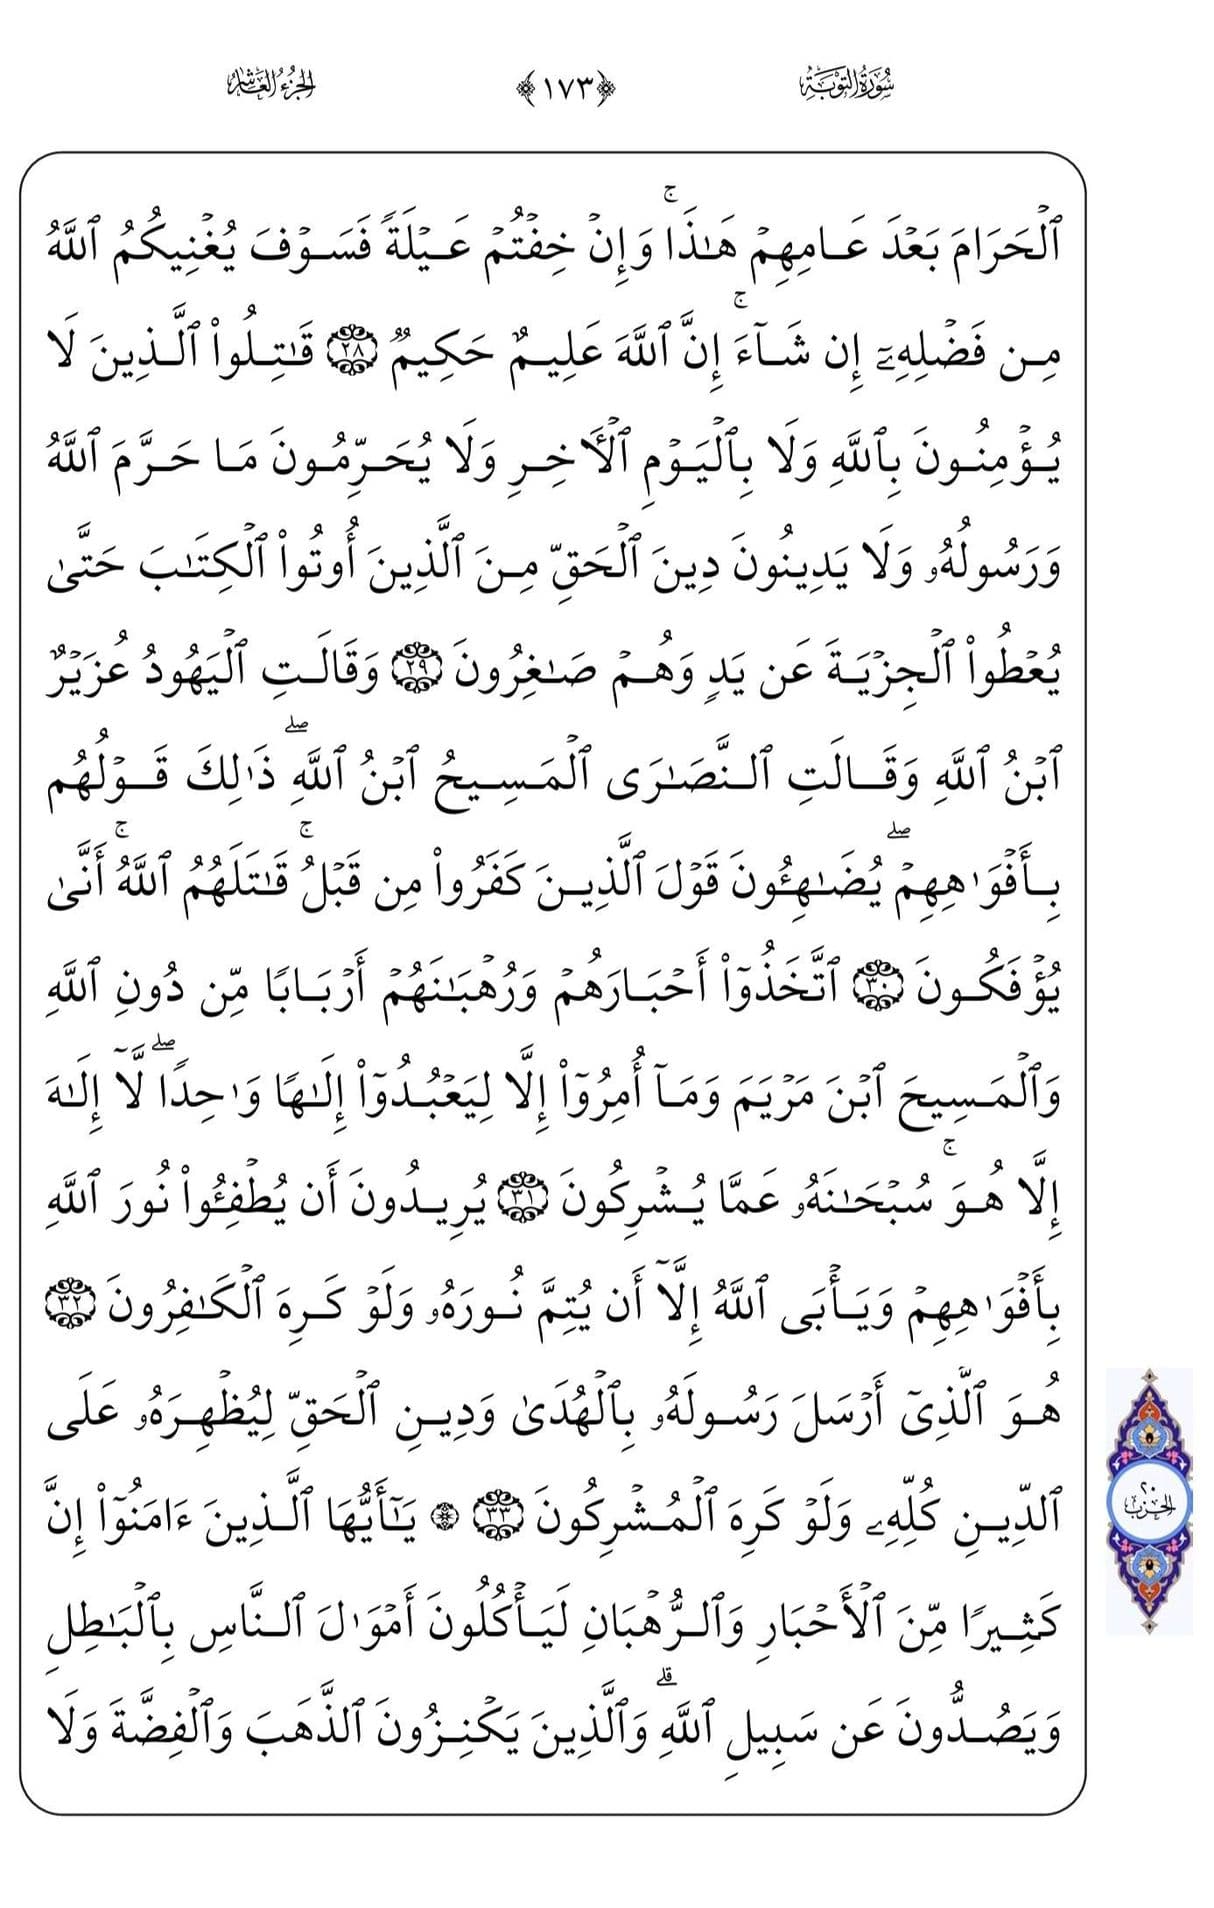 سُورَةُ التَّوْبَةِ
﴿١٧٣﴾
الجُزْءُ العَاشِرُ
ٱلۡحَرَامَ بَعۡدَ عَامِهِمۡ هَٰذَاۚ وَإِنۡ خِفۡتُمۡ عَيۡلَةٗ فَسَوۡفَ يُغۡنِيكُمُ ٱللَّهُ
مِن فَضۡلِهِۦٓ إِن شَآءَۚ إِنَّ ٱللَّهَ عَلِيمٌ حَكِيمٞ ٢٨ قَٰتِلُواْ ٱلَّذِينَ لَا
يُؤۡمِنُونَ بِٱللَّهِ وَلَا بِٱلۡيَوۡمِ ٱلۡأٓخِرِ وَلَا يُحَرِّمُونَ مَا حَرَّمَ ٱللَّهُ
وَرَسُولُهُۥ وَلَا يَدِينُونَ دِينَ ٱلۡحَقِّ مِنَ ٱلَّذِينَ أُوتُواْ ٱلۡكِتَٰبَ حَتَّىٰ
يُعۡطُواْ ٱلۡجِزۡيَةَ عَن يَدٖ وَهُمۡ صَٰغِرُونَ ٢٩ وَقَالَتِ ٱلۡيَهُودُ عُزَيۡرٌ
ٱبۡنُ ٱللَّهِ وَقَالَتِ ٱلنَّصَٰرَى ٱلۡمَسِيحُ ٱبۡنُ ٱللَّهِۖ ذَٰلِكَ قَوۡلُهُم
بِأَفۡوَٰهِهِمۡۖ يُضَٰهِـُٔونَ قَوۡلَ ٱلَّذِينَ كَفَرُواْ مِن قَبۡلُۚ قَٰتَلَهُمُ ٱللَّهُۚ أَنَّىٰ
يُؤۡفَكُونَ ٣٠ ٱتَّخَذُوٓاْ أَحۡبَارَهُمۡ وَرُهۡبَٰنَهُمۡ أَرۡبَابٗا مِّن دُونِ ٱللَّهِ
وَٱلۡمَسِيحَ ٱبۡنَ مَرۡيَمَ وَمَآ أُمِرُوٓاْ إِلَّا لِيَعۡبُدُوٓاْ إِلَٰهٗا وَٰحِدٗاۖ لَّآ إِلَٰهَ
إِلَّا هُوَۚ سُبۡحَٰنَهُۥ عَمَّا يُشۡرِكُونَ ٣١ يُرِيدُونَ أَن يُطۡفِـُٔواْ نُورَ ٱللَّهِ
بِأَفۡوَٰهِهِمۡ وَيَأۡبَى ٱللَّهُ إِلَّآ أَن يُتِمَّ نُورَهُۥ وَلَوۡ كَرِهَ ٱلۡكَٰفِرُونَ ٣٢
هُوَ ٱلَّذِيٓ أَرۡسَلَ رَسُولَهُۥ بِٱلۡهُدَىٰ وَدِينِ ٱلۡحَقِّ لِيُظۡهِرَهُۥ عَلَى
ٱلدِّينِ كُلِّهِۦ وَلَوۡ كَرِهَ ٱلۡمُشۡرِكُونَ ٣٣ ۞ يَٰٓأَيُّهَا ٱلَّذِينَ ءَامَنُوٓاْ إِنَّ
كَثِيرٗا مِّنَ ٱلۡأَحۡبَارِ وَٱلرُّهۡبَانِ لَيَأۡكُلُونَ أَمۡوَٰلَ ٱلنَّاسِ بِٱلۡبَٰطِلِ
وَيَصُدُّونَ عَن سَبِيلِ ٱللَّهِۗ وَٱلَّذِينَ يَكۡنِزُونَ ٱلذَّهَبَ وَٱلۡفِضَّةَ وَلَا
الحزب ٢٠